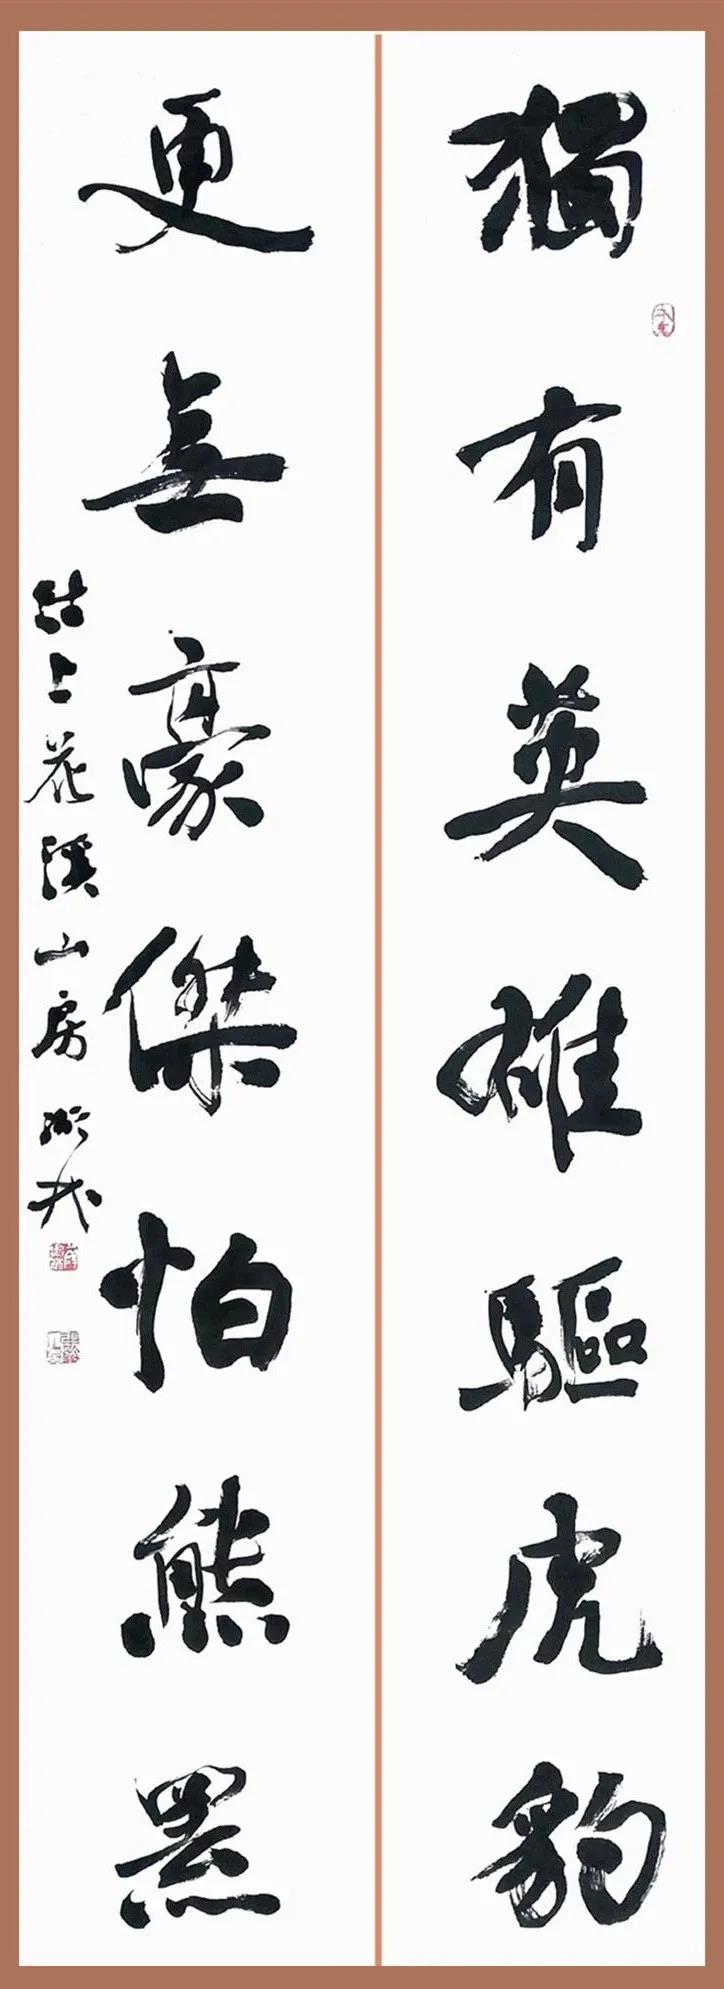 獨有英雄驅虎豹
更無豪傑怕熊羆
沽上花溪山房